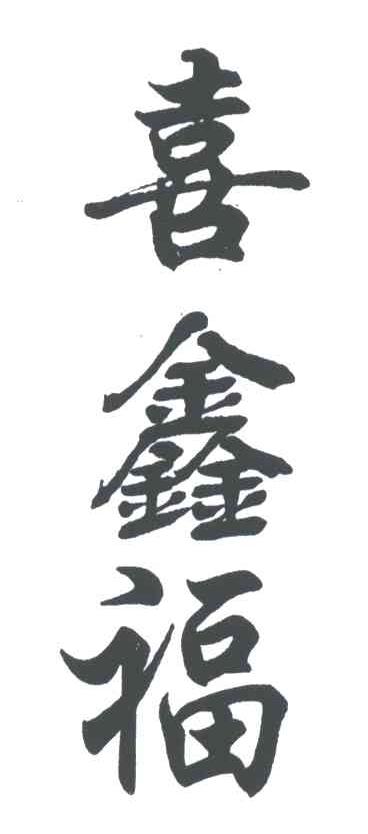 喜鑫福